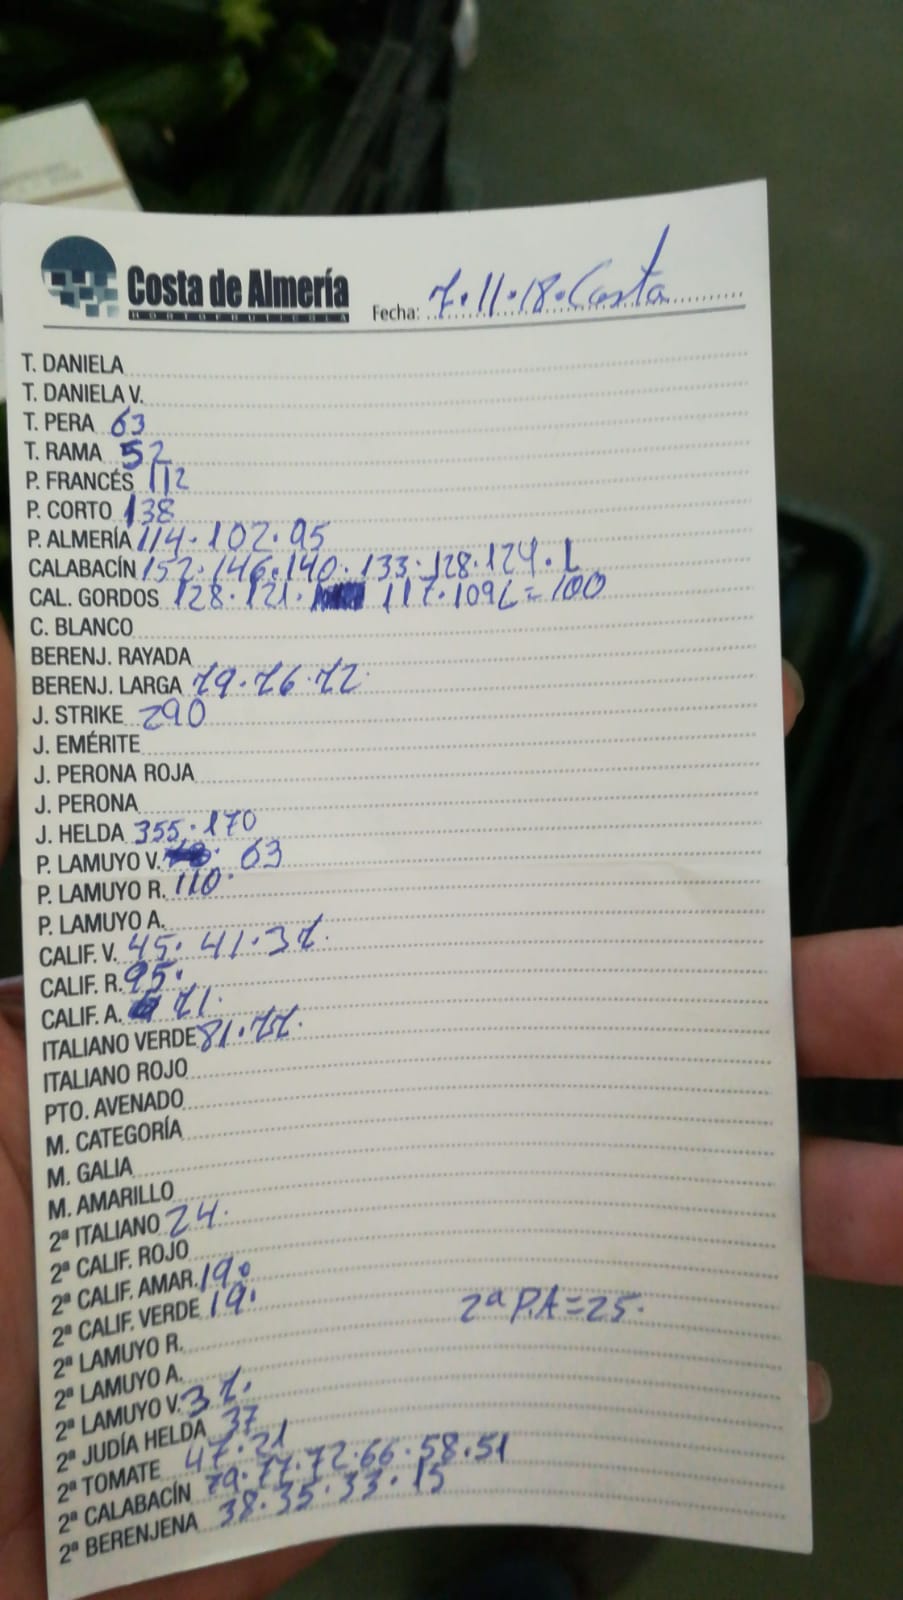 Costa de Almería
HORTOFRUTÍCOLA
Fecha: 7.11.18. Costa
T. DANIELA
T. DANIELA V.
T. PERA 63
T. RAMA 52
P. FRANCÉS 112
P. CORTO 138
P. ALMERÍA 114.102.95
CALABACÍN 152.146.140.133.128.124.L
CAL. GORDOS 128.121. 117.109L=100
C. BLANCO
BERENJ. RAYADA
BERENJ. LARGA 79.76.72.
J. STRIKE 290
J. EMÉRITE
J. PERONA ROJA
J. PERONA
J. HELDA 355.170
P. LAMUYO V. 63
P. LAMUYO R. 110.
P. LAMUYO A.
CALIF. V. 45.41.37.
CALIF. R. 95.
CALIF. A. 71.
ITALIANO VERDE 81.77.
ITALIANO ROJO
PTO. AVENADO
M. CATEGORÍA
M. GALIA
M. AMARILLO
2ª ITALIANO 24.
2ª CALIF. ROJO
2ª CALIF. AMAR. 19.
2ª CALIF. VERDE 19. 2ª P.A=25.
2ª LAMUYO R.
2ª LAMUYO A.
2ª LAMUYO V. 37.
2ª JUDÍA HELDA 37
2ª TOMATE 47.21
2ª CALABACÍN 79.77.72.66.58.51
2ª BERENJENA 38.35.33.15